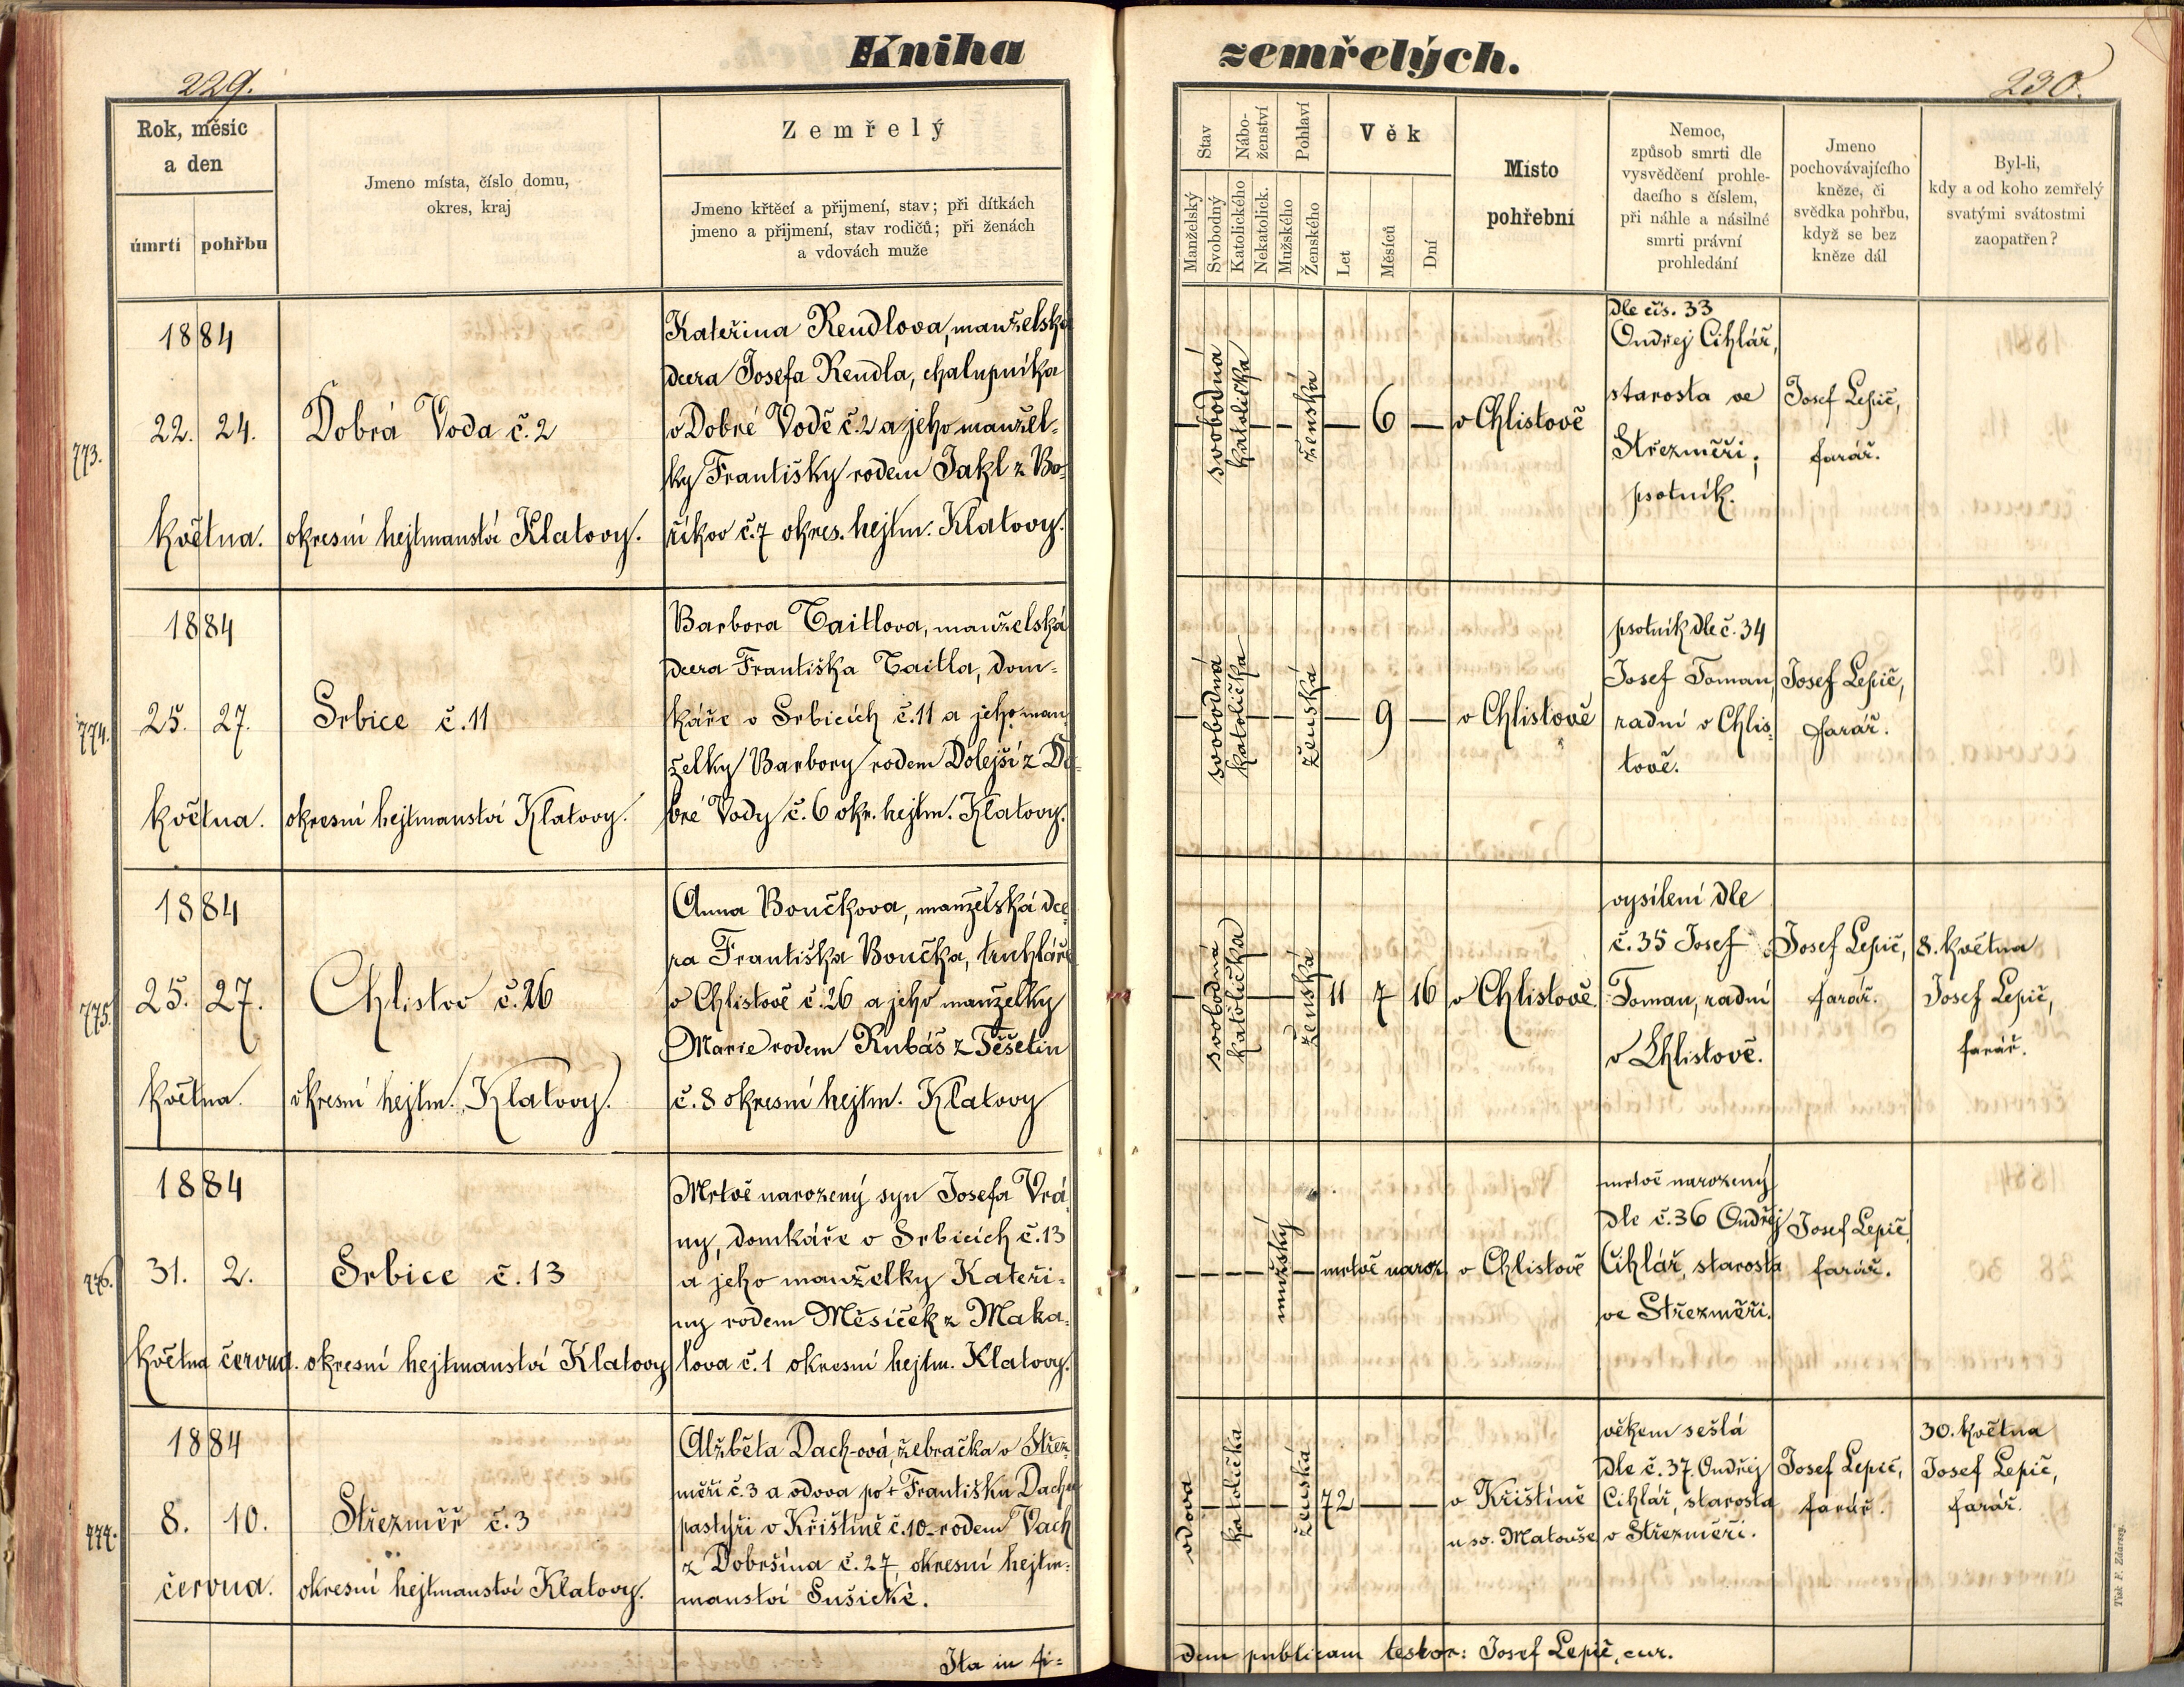 Kniha zemřelých.
229.
230.
Rok, měsíc
a den
úmrtí
pohřbu
Jmeno místa, číslo domu,
okres, kraj
Zemřelý
Jmeno křtěcí a přijmení, stav; při dítkách
jmeno a přijmení, stav rodičů; při ženách
a vdovách muže
Stav
Manželský
Svobodný
Nábo-
ženství
Katolického
Nekatolick.
Pohlaví
Mužského
Ženského
Věk
Let
Měsíců
Dní
Místo
pohřební
Nemoc,
způsob smrti dle
vysvědčení prohle-
dacího s číslem,
při náhle a násilné
smrti právní
prohledání
Jmeno
pochovávajícího
kněze, či
svědka pohřbu,
když se bez
kněze dál
Byl-li,
kdy a od koho zemřelý
svatými svátostmi
zaopatřen?
773.
1884
22. 24.
května.
Dobrá Voda č. 2
okresní hejtmanství Klatovy.
Kateřina Rendlova, manželská
dcera Josefa Rendla, chalupníka
v Dobré Vodě č. 2 a jeho manžel-
ky Františky rodem Jakl z Bo-
říkov č. 7 okres. hejtm. Klatovy.
svobodná
katolička
ženská
— 6 —
v Chlistově
dle čís. 33
Ondřej Cihlář,
starosta ve
Střezměři;
psotník.
Josef Lepič,
farář.
774.
1884
25. 27.
května.
Srbice č. 11
okresní hejtmanství Klatovy.
Barbora Taitlova, manželská
dcera Františka Taitla, dom-
káře v Srbicích č. 11 a jeho man-
želky Barbory rodem Dolejší z Do-
bré Vody č. 6 okr. hejtm. Klatovy.
svobodná
katolička
ženská
— 9 —
v Chlistově
psotník dle č. 34
Josef Toman,
radní v Chlis-
tově.
Josef Lepič,
farář.
775.
1884
25. 27.
května.
Chlistov č. 26
okresní hejtm. Klatovy.
Anna Boučkova, manželská dce-
ra Františka Boučka, truhláře
v Chlistově č. 26 a jeho manželky
Marie rodem Rubáš z Těšetin
č. 8 okresní hejtm. Klatovy
svobodná
katolička
ženská
11 7 16
v Chlistově
vysílení dle
č. 35 Josef
Toman, radní
v Chlistově.
Josef Lepič,
farář.
8. května
Josef Lepič,
farář.
776.
1884
31. 2.
května června.
Srbice č. 13
okresní hejtmanství Klatovy
Mrtvě narozený syn Josefa Vrá-
ny, domkáře v Srbicích č. 13
a jeho manželky Kateři-
ny rodem Měsíček z Maka-
lova č. 1 okresní hejtm. Klatovy.
mužský
mrtvě naroz.
v Chlistově
mrtvě narozený
dle č. 36 Ondřej
Cihlář, starosta
ve Střezměři.
Josef Lepič,
farář.
777.
1884
8. 10.
června.
Střezměř č. 3
okresní hejtmanství Klatovy.
Alžběta Dach-ová, žebračka v Střez-
měři č. 3 a vdova po + Františku Dach
pastýři v Křištíně č. 10 rodem Vach
z Dobršína č. 27, okresní hejtm-
manství Sušické.
vdova
katolička
ženská
72 — —
v Křištíně
u sv. Matouše
věkem sešlá
dle č. 37. Ondřej
Cihlář, starosta
v Střezměři.
Josef Lepič,
farář.
30. května
Josef Lepič,
farář.
Ita in fi-
dem publicam testor: Josef Lepič, cur.
Tisk F. Zdarssy.